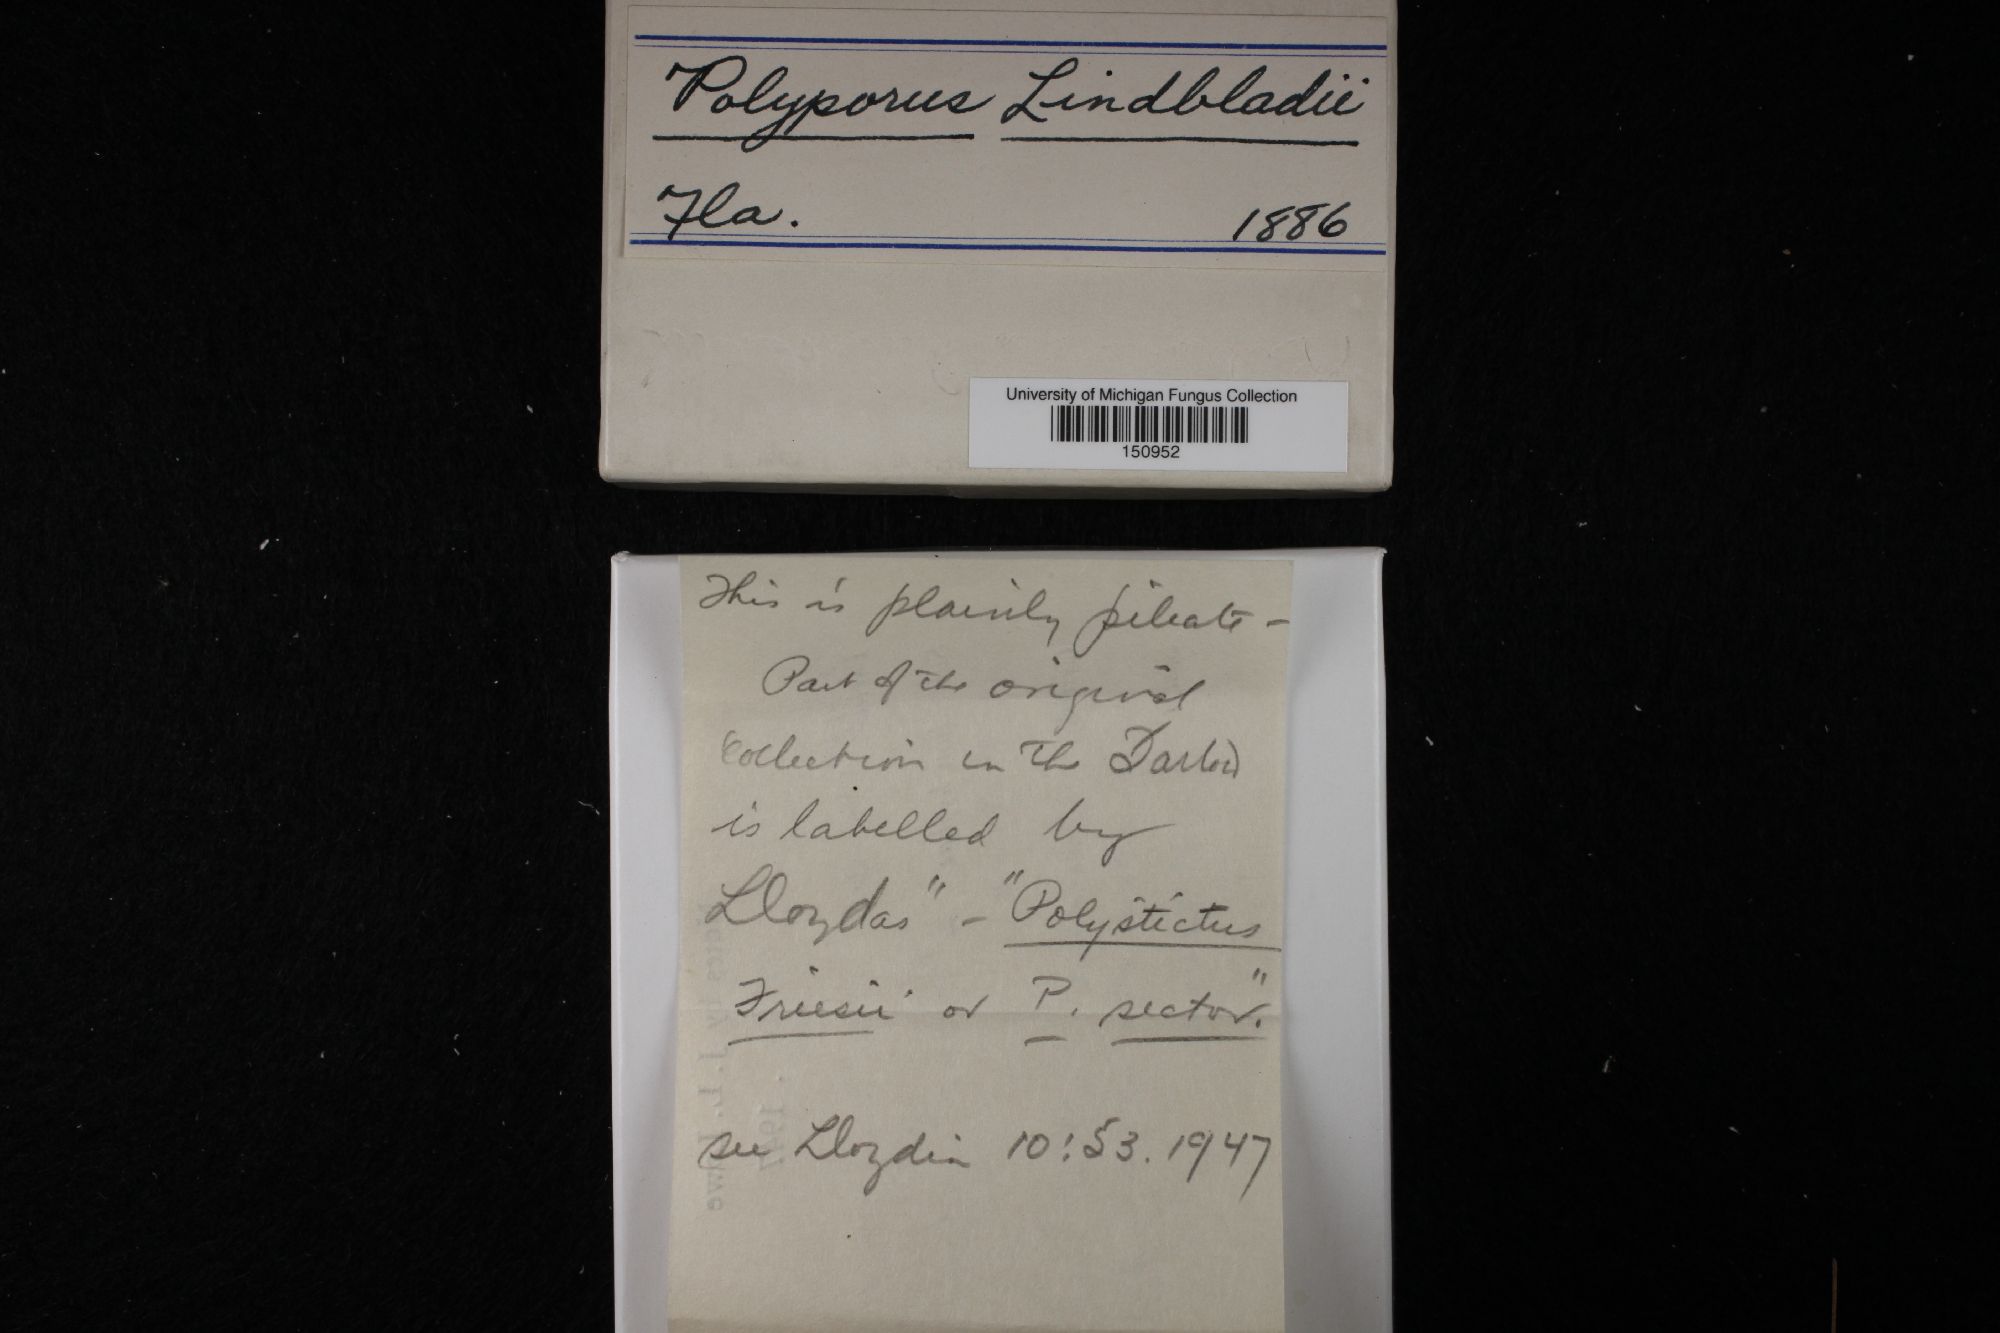 Polyporus Lindbladii
Fla. 1886
University of Michigan Fungus Collection
150952
This is plainly pileate -
Part of the original
collection in the Farlow
is labelled by
Lloyd as" - "Polystictus
Friesii or P. sector."
see Lloydia 10:53. 1947